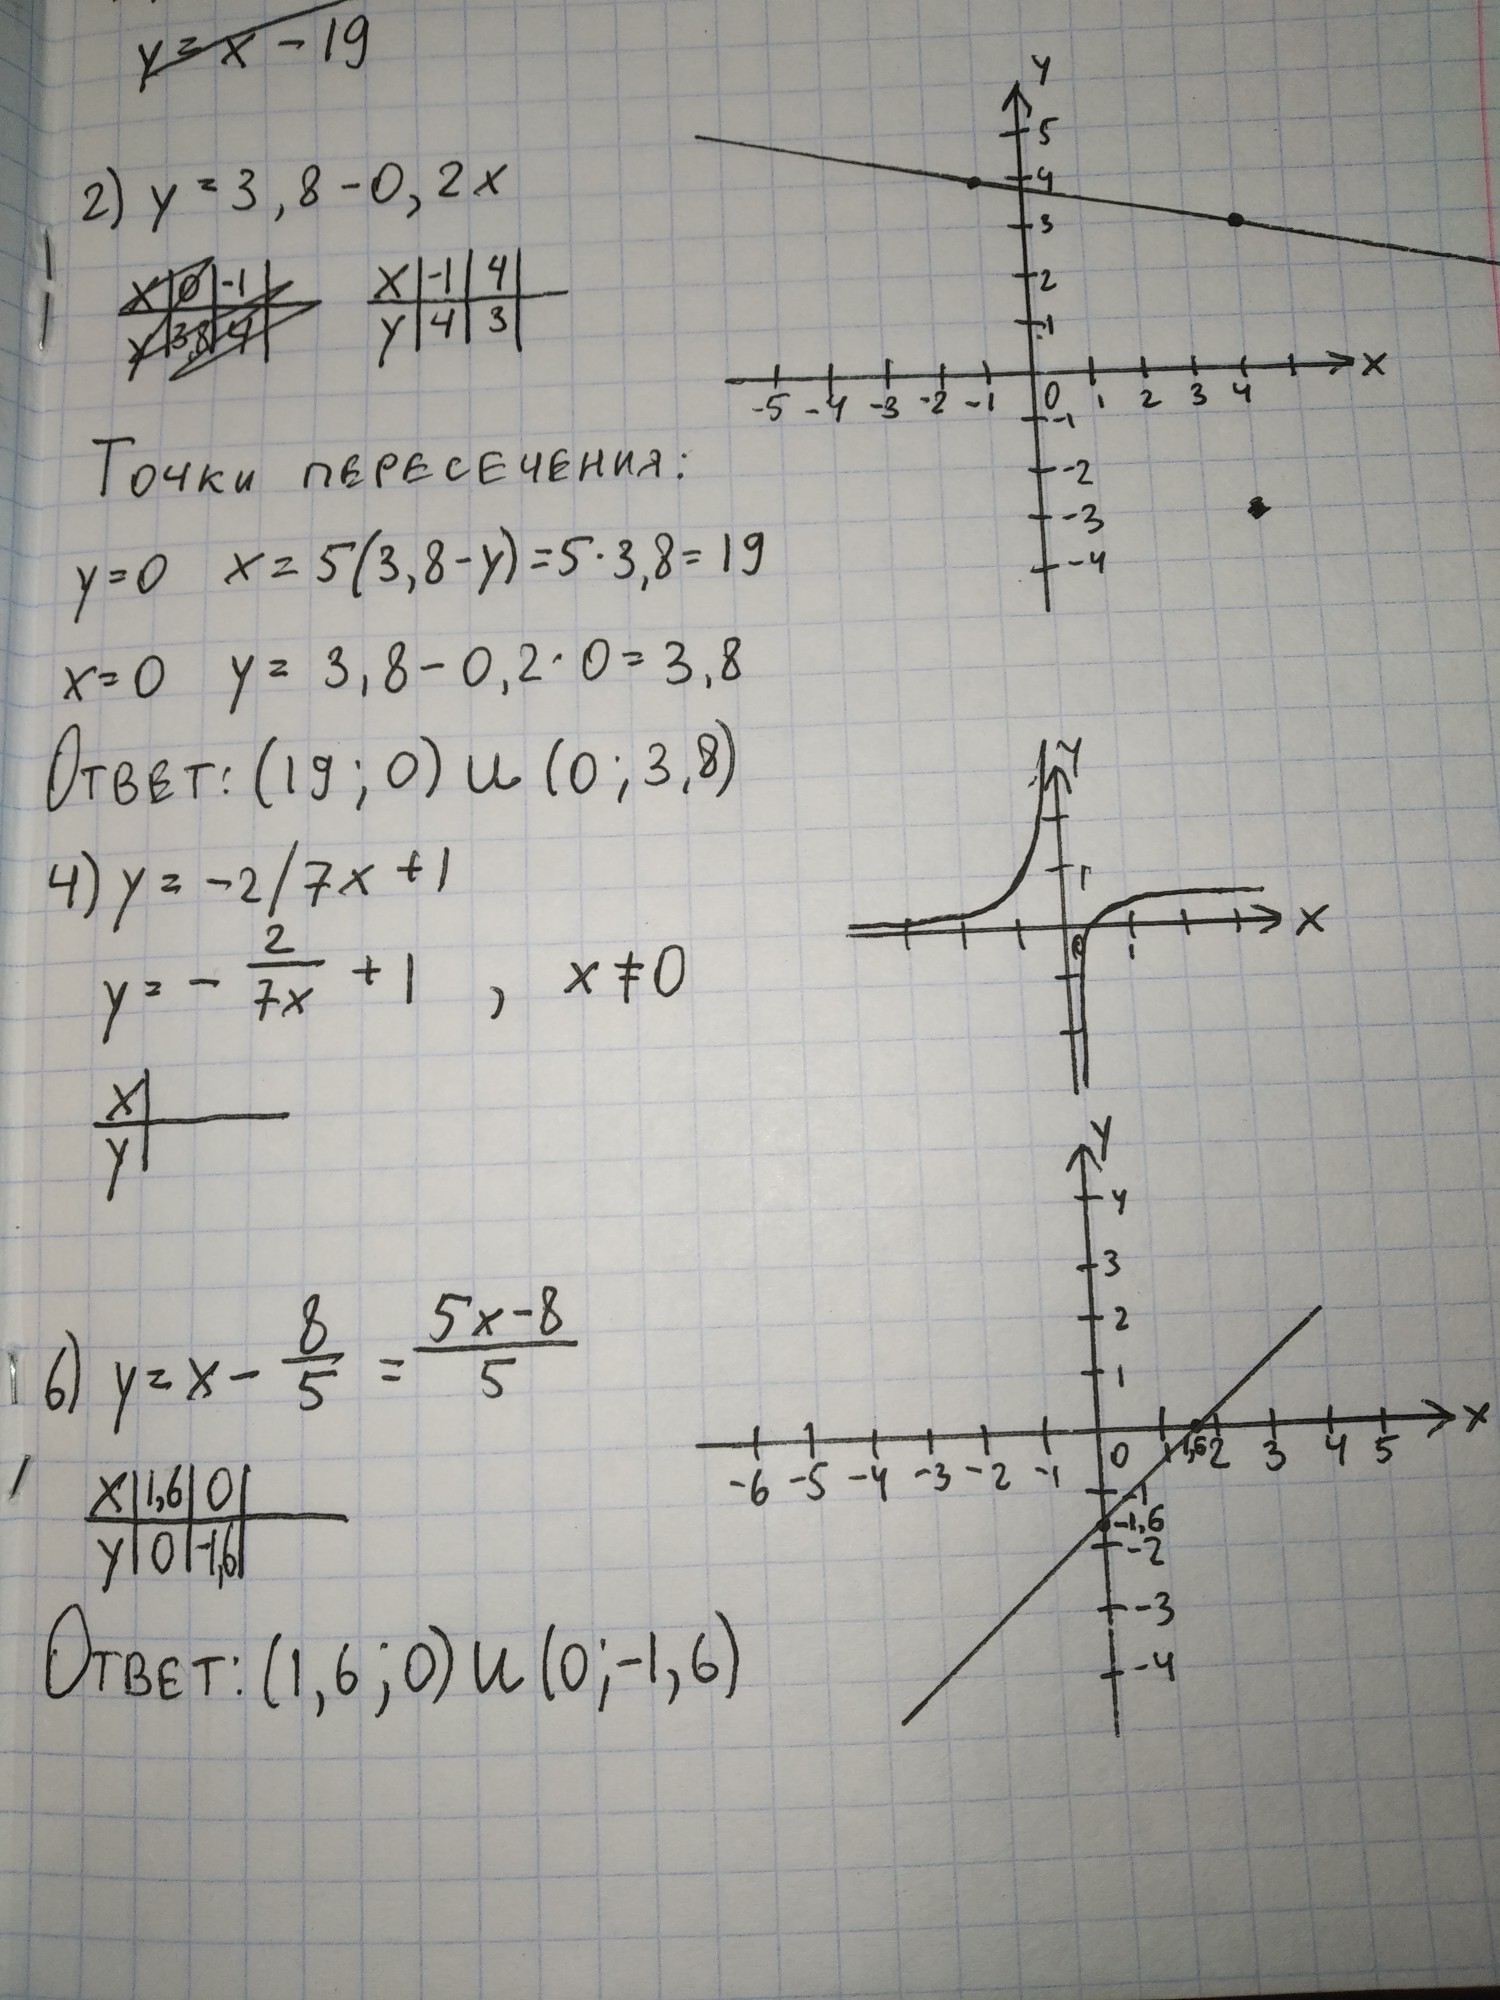 y = x - 19
2) y = 3,8 - 0,2x
x | 0 | -1 |
y | 3,8 | 4 |
x | -1 | 4 |
y | 4 | 3 |
Точки пересечения:
y=0 x = 5(3,8-y) = 5·3,8 = 19
x=0 y = 3,8 - 0,2·0 = 3,8
Ответ: (19; 0) и (0; 3,8)
y
5
4
3
2
1
-5 -4 -3 -2 -1 0 1 2 3 4 x
-1
-2
-3
-4
4) y = -2/7x + 1
y = - 2/7x + 1 , x ≠ 0
x |
y |
y
1
0 1 x
6) y = x - 8/5 = 5x-8/5
x | 1,6 | 0 |
y | 0 | -1,6 |
Ответ: (1,6; 0) и (0; -1,6)
y
4
3
2
1
-6 -5 -4 -3 -2 -1 0 1 1,6 2 3 4 5 x
-1
-1,6
-2
-3
-4